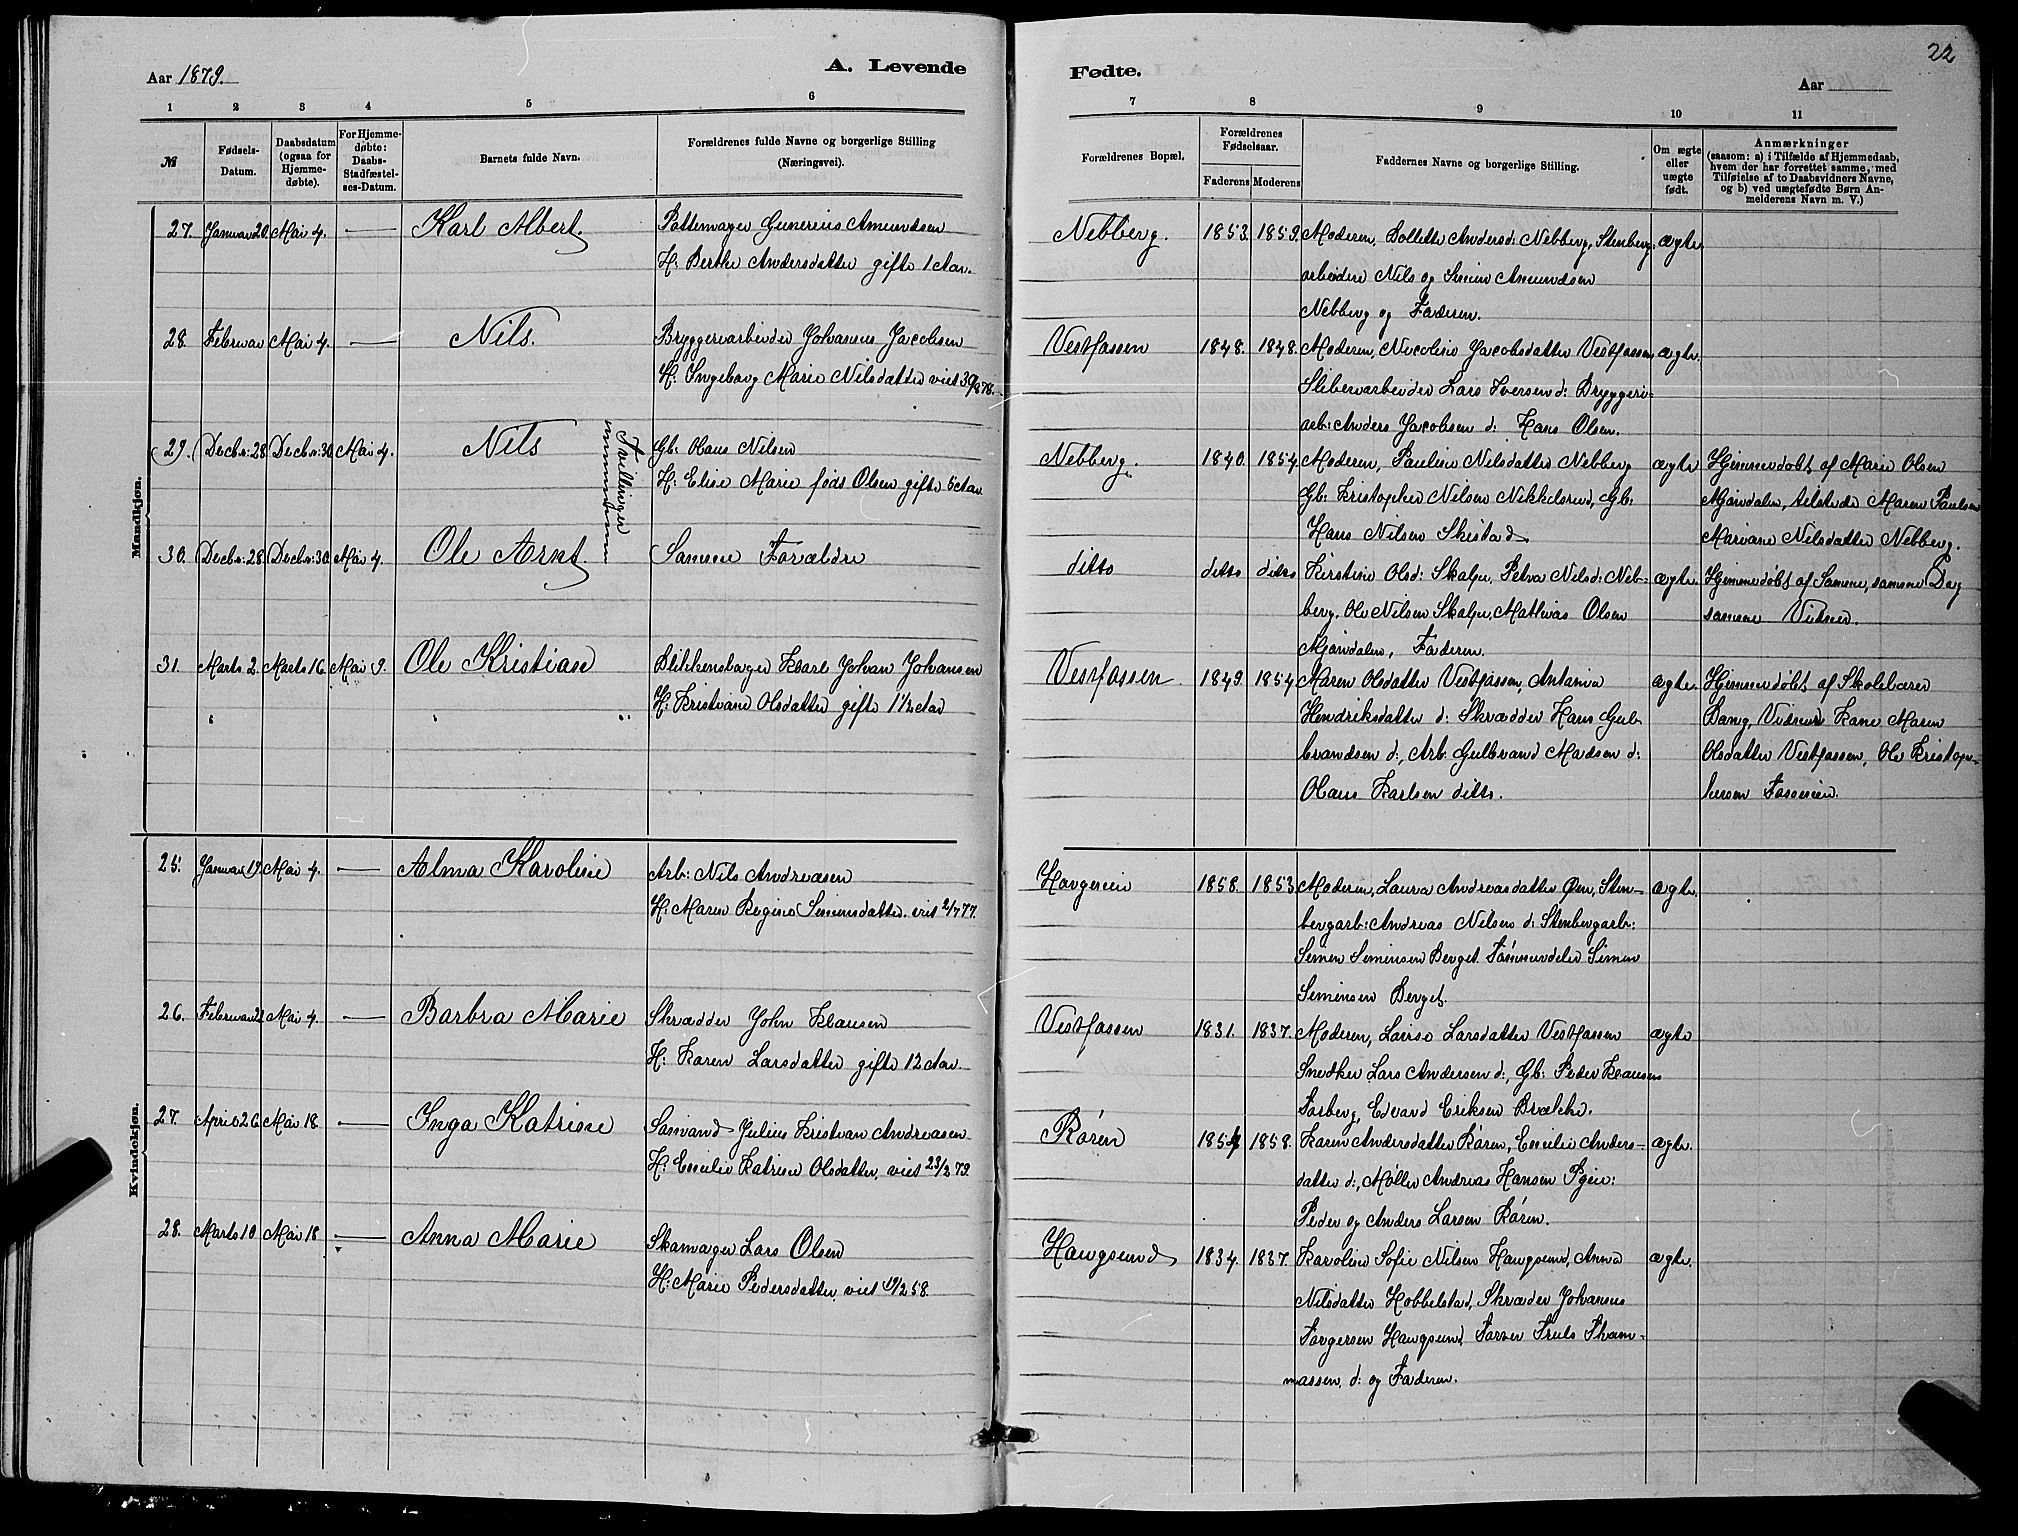 22
Aar 1879.
A. Levende
Fødte.
Aar
1 2 3 4 5 6 7 8 9 10 11
№
Fødsels-
Datum.
Daabsdatum
(ogsaa for
Hjemme-
døbte).
For Hjemme-
døbte:
Daabs-
Stadfæstel-
ses-Datum.
Barnets fulde Navn.
Forældrenes fulde Navne og borgerlige Stilling
(Næringsvei).
Forældrenes Bopæl.
Forældrenes
Fødselsaar.
Faderens Moderens
Faddernes Navne og borgerlige Stilling.
Om ægte
eller
uægte
født.
Anmærkninger
(saasom: a) i Tilfælde af Hjemmedaab,
hvem der har forrettet samme, med
Tilføielse af to Daabsvidners Navne,
og b) ved uægtefødte Børn An-
melderens Navn m. V.)
Mandkjøn.
27. Januar 20. Mai 4. — Karl Albert.
Pottemager Gunerius Amundsen
H: Berthe Andersdatter gifte 1 Aar.
Nebberg. 1853. 1859.
Moderen, Bollette Andersd: Nebberg, Stenberg-
arbeidere Nils og Simen Amundsen
Nebberg og Faderen.
ægte.
28. Februar Mai 4. — Nils.
Bryggeriarbeider Johannes Jacobsen
H: Ingeborg Marie Nilsdatter viet
Vestfossen 1848. 1848.
Moderen, Nicoline Jacobsdatter Vestfossen
Sliberiarbeider Lars Iversen d: Bryggeri-
arb: Anders Jacobsen d: Hans Olsen.
ægte.
29. Decbr: 28 Decbr: 30 Mai 4. Nils
Tvillinger
Gb: Hans Nilsen
H: Elise Marie født Olsen gifte 5 Aar
Nebberg. 1840. 1854.
Moderen, Pauline Nilsdatter Nebberg
Gb: Kristopher Nilsen Nikkelsrud, Gb:
Hans Nilsen Skistad
ægte
Hjemmedøbt af Marie Olsen
Mjøndalen, tilstede Maren Paulsen
Mariane Nilsdatter Nebberg.
30. Decbr: 28 Decbr: 30. Mai 4. Ole Arnt
Samme Forældre
ditto ditto ditto
Kirstine Olsd: Skalpe, Petra Nilsd: Neb-
berg, Ole Nilsen Skalpe, Mathias Olsen
Mjøndalen, Faderen.
ægte.
Hjemmedøbt af Samme, samme Dag
samme Vidner.
31. Marts 2. Marts 16. Mai 9. Ole Kristian
Blikkenslager Karl Johan Johansen
H: Kristiane Olsdatter gifte 1 1/2 Aar
Vestfossen 1849. 1854
Maren Olsdatter Vestfossen, Antania
Hendriksdatter d: Skrædder Hans Gul-
brandsen d:, Arb: Gulbrand Madsen d:
Hans Karlsen ditto.
ægte.
Hjemmedøbt af Skolelærer
Bang, Vidner Kone Maren
Olsdatter Vestfossen, Ole Kristop-
hersen Fosserien.
Kvindekjøn.
25. Januar 19. Mai 4. — Alma Karoline
Arb: Nils Andreasen
H: Maren Regine Simensdatter. viet 2/7 77.
Haugerein 1858. 1853
Moderen, Laura Andreasdatter Øen, Sten-
bergarb: Andreas Nilsen d: Stenbergarb:
Simen Simensen Berget. Tømmerdeler Simen
Simensen Berget.
ægte.
26. Februar 21 Mai 4. — Barbra Marie
Skrædder John Klausen
H: Karen Larsdatter gifte 12 Aar.
Vestfossen 1831. 1837.
Moderen, Lovise Larsdatter Vestfossen
Snedker Lars Andersen d:, Gb: Peder Klausen
Forberg, Edvard Eriksen Brække.
ægte
27. April 26. Mai 18 — Inga Katrine
Sømand Julius Kristian Andreasen
H: Emilie Katrine Olsdatter, viet 23/2 79
Røren 1854 1858.
Karen Andersdatter Røren, Emilie Anders-
datter d:, Møller Andreas Hansen
Peder og Anders Larsen Røren.
ægte.
28. Marts 10 Mai 18 — Anna Marie
Skomager Lars Olsen
H: Marie Pedersdatter, viet 19/2 58.
Haugsund 1834. 1837.
Karoline Sofie Nilsen Haugsund, Anna
Nilsdatter Hobbelstad, Skræder Johannes
Torgersen Haugsund, Farver Truls Thom-
massen, d: og Faderen.
ægte.